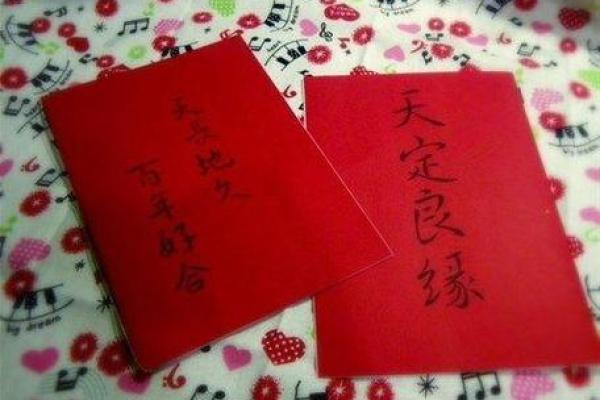 天长地久
百年好合
天定良缘
by dream